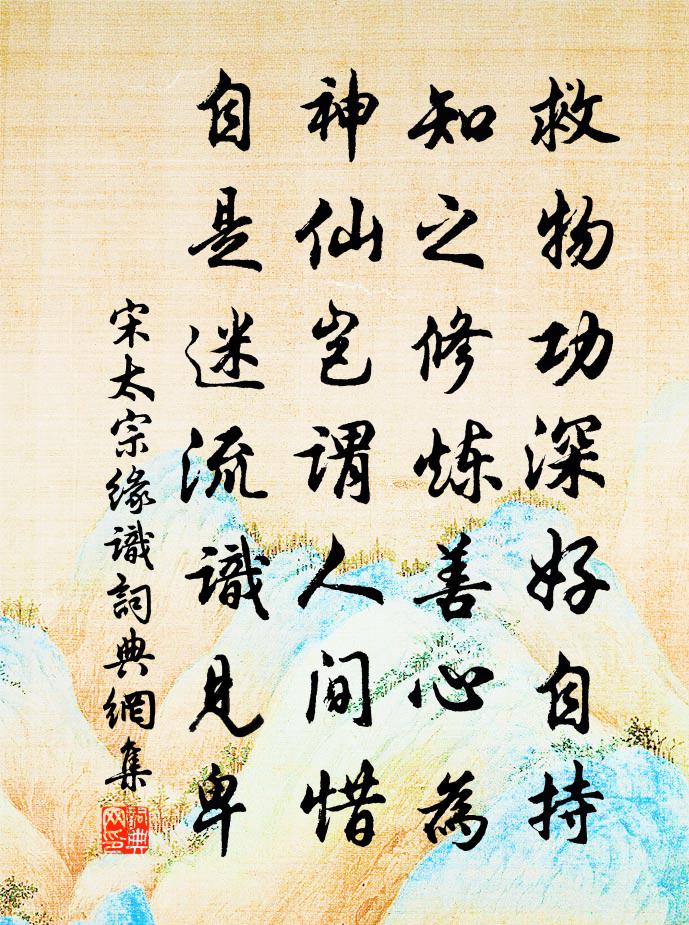 救物功深好自持
知之修炼善心為
神仙岂谓人间惜
自是迷流識見卑
宋太宗缘識詞典網集
詞典網印